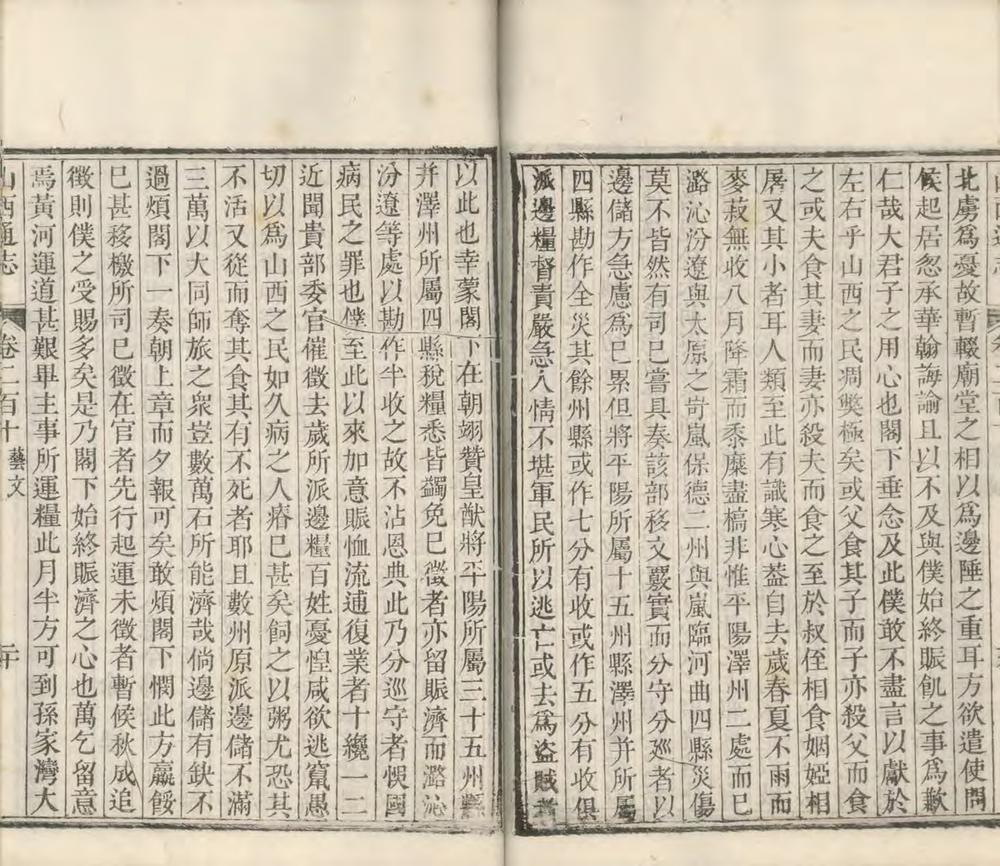 北虜爲憂故暫輟廟堂之相以爲邊陲之重耳方欲遣使問
候起居忽承華翰誨諭且以不及與僕始終賑飢之事爲歉
仁哉大君子之用心也閣下垂念及此僕敢不盡言以獻於
左右乎山西之民凋獘極矣或父食其子而子亦殺父而食
之或夫食其妻而妻亦殺夫而食之至於叔侄相食姻婭相
屠又其小者耳人類至此有識寒心葢自去歲春夏不雨而
麥菽無收八月降霜而黍糜盡槁非惟平陽澤州二處而已
潞沁汾遼與太原之岢嵐保德二州與嵐臨河曲四縣災傷
莫不皆然有司已嘗具奏該部移文覈實而分守分廵者以
邊儲方急慮爲已累但將平陽所屬十五州縣澤州并所屬
四縣勘作全災其餘州縣或作七分有收或作五分有收俱
派邊糧督責嚴急人情不堪軍民所以逃亡或去爲盜賊者
以此也幸蒙閣下在朝翊贊皇猷將平陽所屬三十五州縣
并澤州所屬四縣稅糧悉皆蠲免已徵者亦留賑濟而潞沁
汾遼等處以勘作半收之故不沾恩典此乃分巡守者悞國
病民之罪也僕至此以來加意賑恤流逋復業者十纔一二
近聞貴部委官催徵去歲所派邊糧百姓憂惶咸欲逃竄愚
切以爲山西之民如久病之人瘠已甚矣飼之以粥尤恐其
不活又從而奪其食其有不死者耶且數州原派邊儲不滿
三萬以大同師旅之衆豈數萬石所能濟哉倘邊儲有缺不
過煩閣下一奏朝上章而夕報可矣敢煩閣下憫此方羸餒
已甚移檄所司已徵在官者先行起運未徵者暫候秋成追
徵則僕之受賜多矣是乃閣下始終賑濟之心也萬乞留意
焉黃河運道甚艱畢主事所運糧此月半方可到孫家灣大
山西通志 卷二百十 藝文